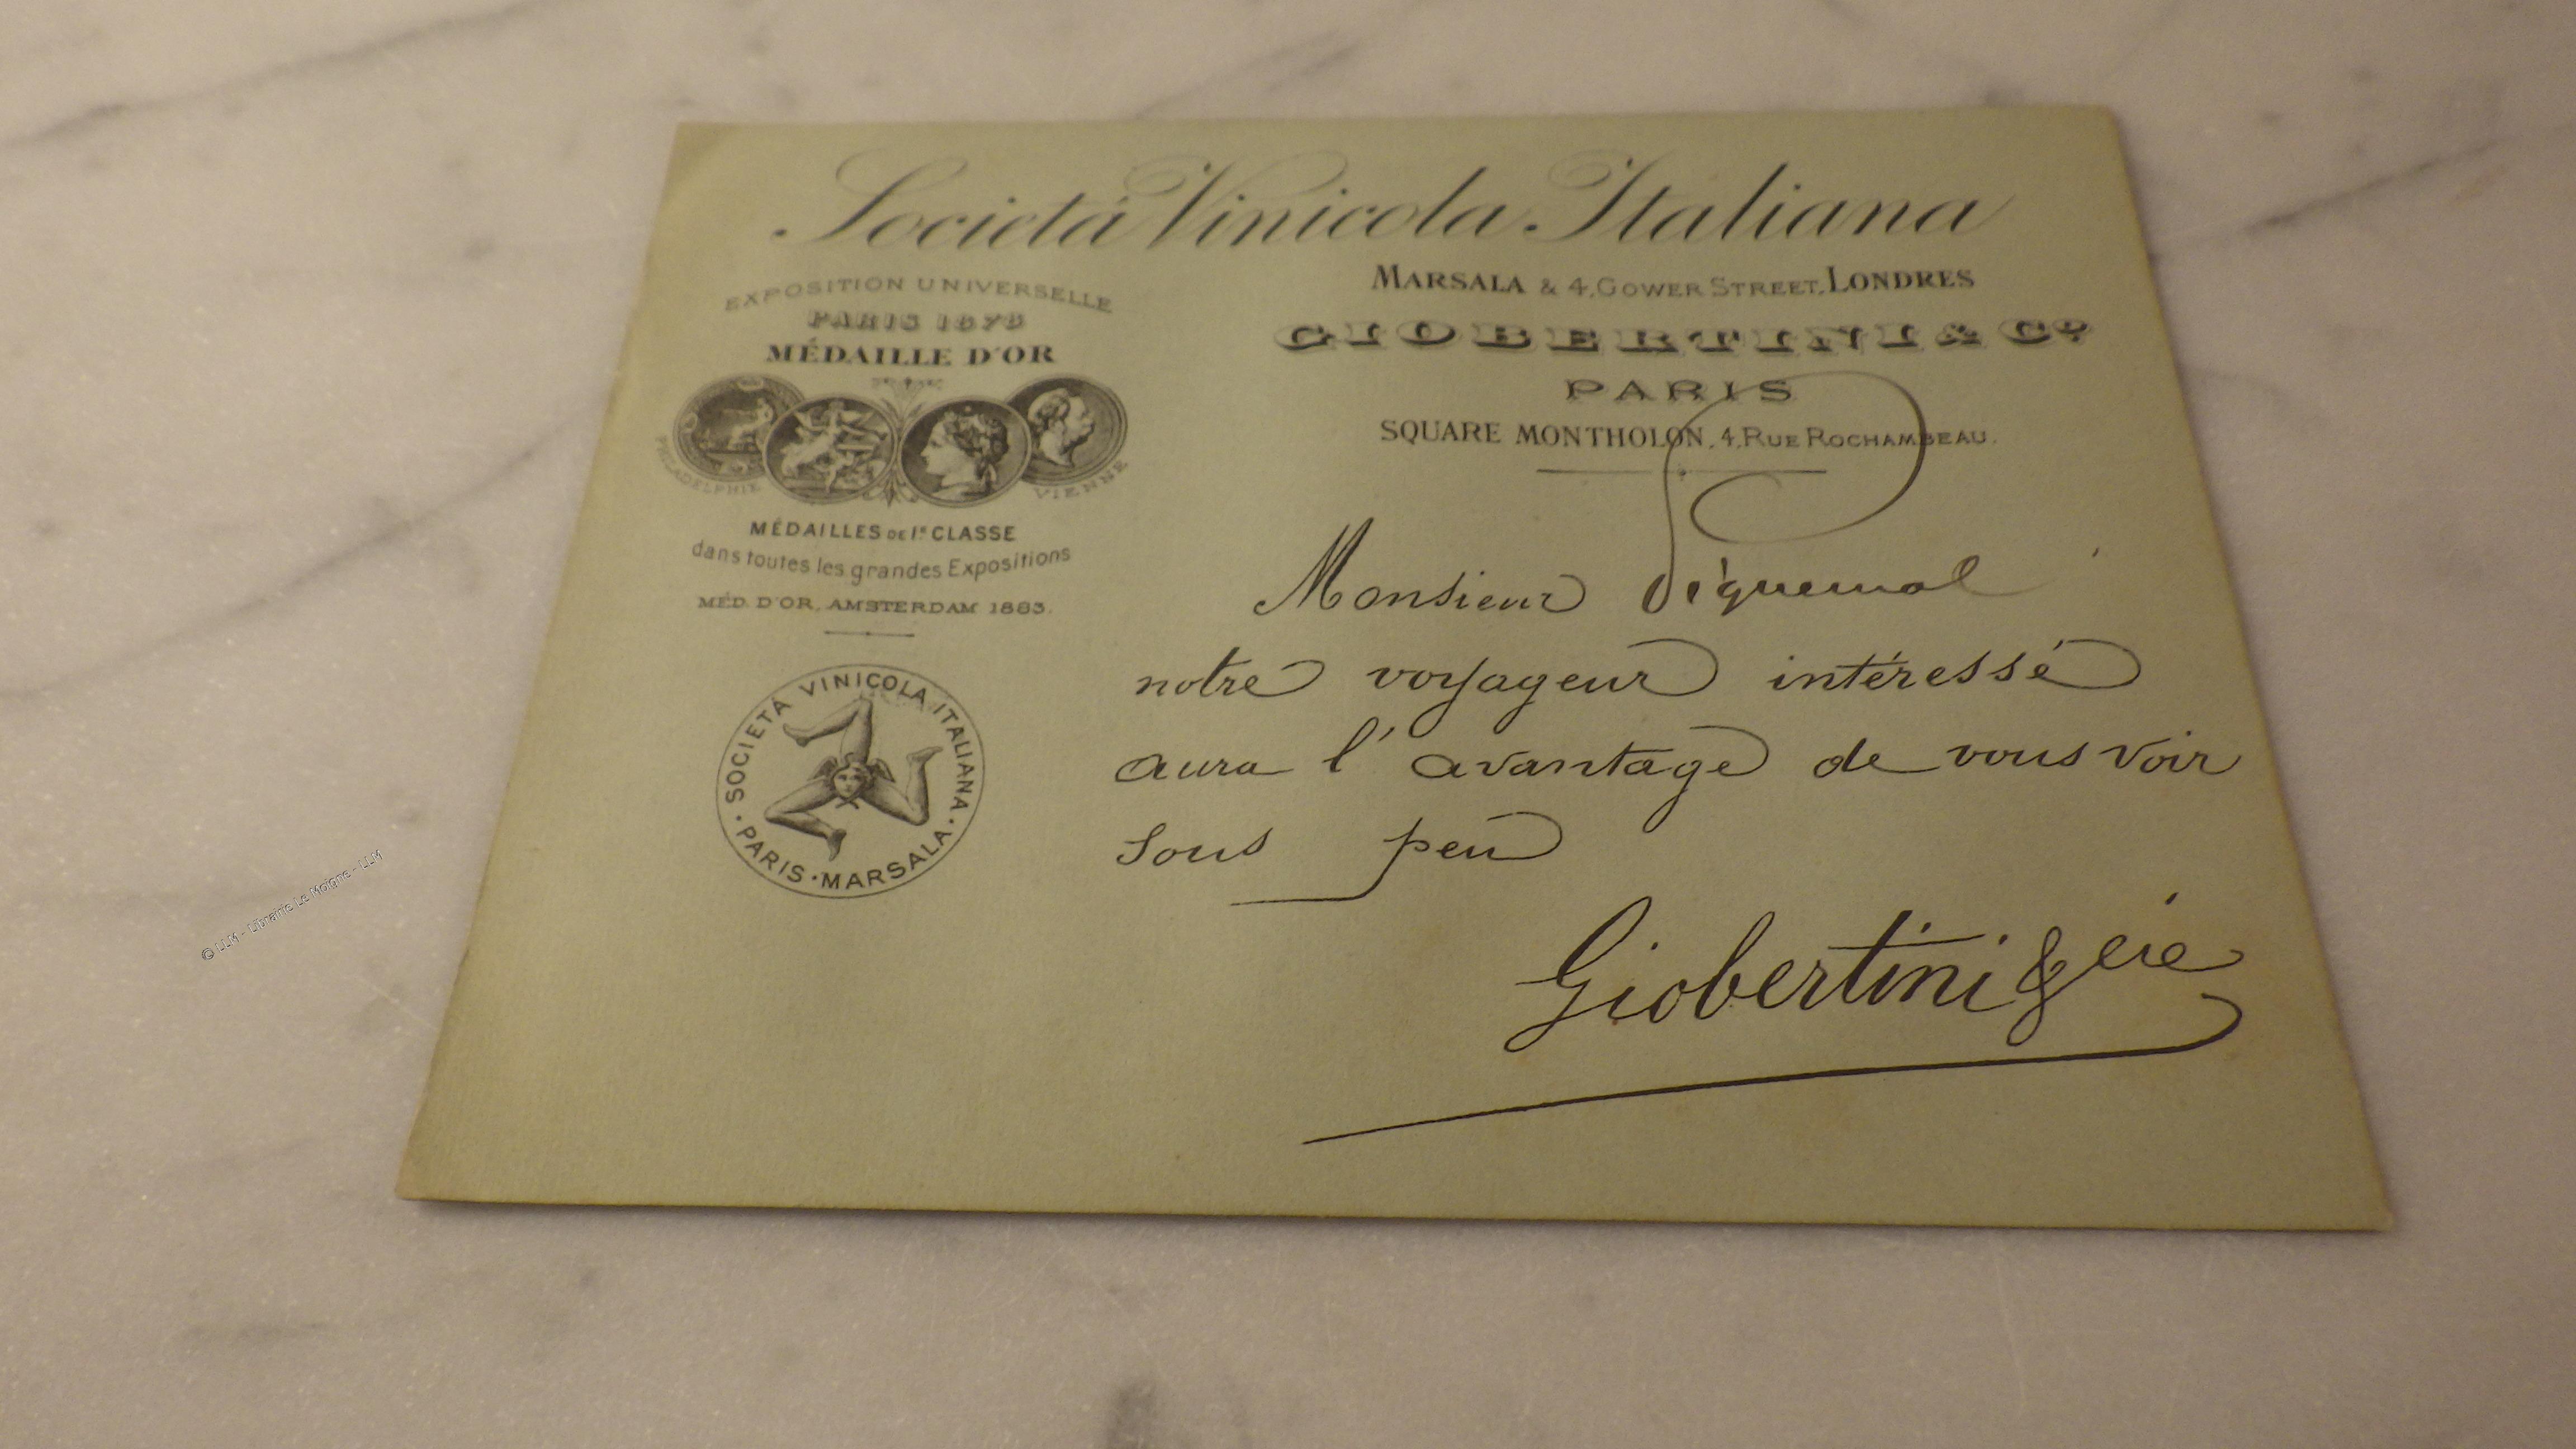 Societá Vinicola Italiana
EXPOSITION UNIVERSELLE
PARIS 1878
MÉDAILLE D'OR
PHILADELPHIE
VIENNE
MÉDAILLES DE 1re CLASSE
dans toutes les grandes Expositions
MÉD. D'OR, AMSTERDAM 1883.
· SOCIETÁ VINICOLA ITALIANA ·
PARIS · MARSALA
MARSALA & 4, GOWER STREET, LONDRES
GIOBERTINI & Co
PARIS
SQUARE MONTHOLON, 4, RUE ROCHAMBEAU.
Monsieur Piquemal
notre voyageur intéressé
aura l'avantage de vous voir
sous peu
Giobertini & Cie
© LLM - Librairie Le Moigne - LLM